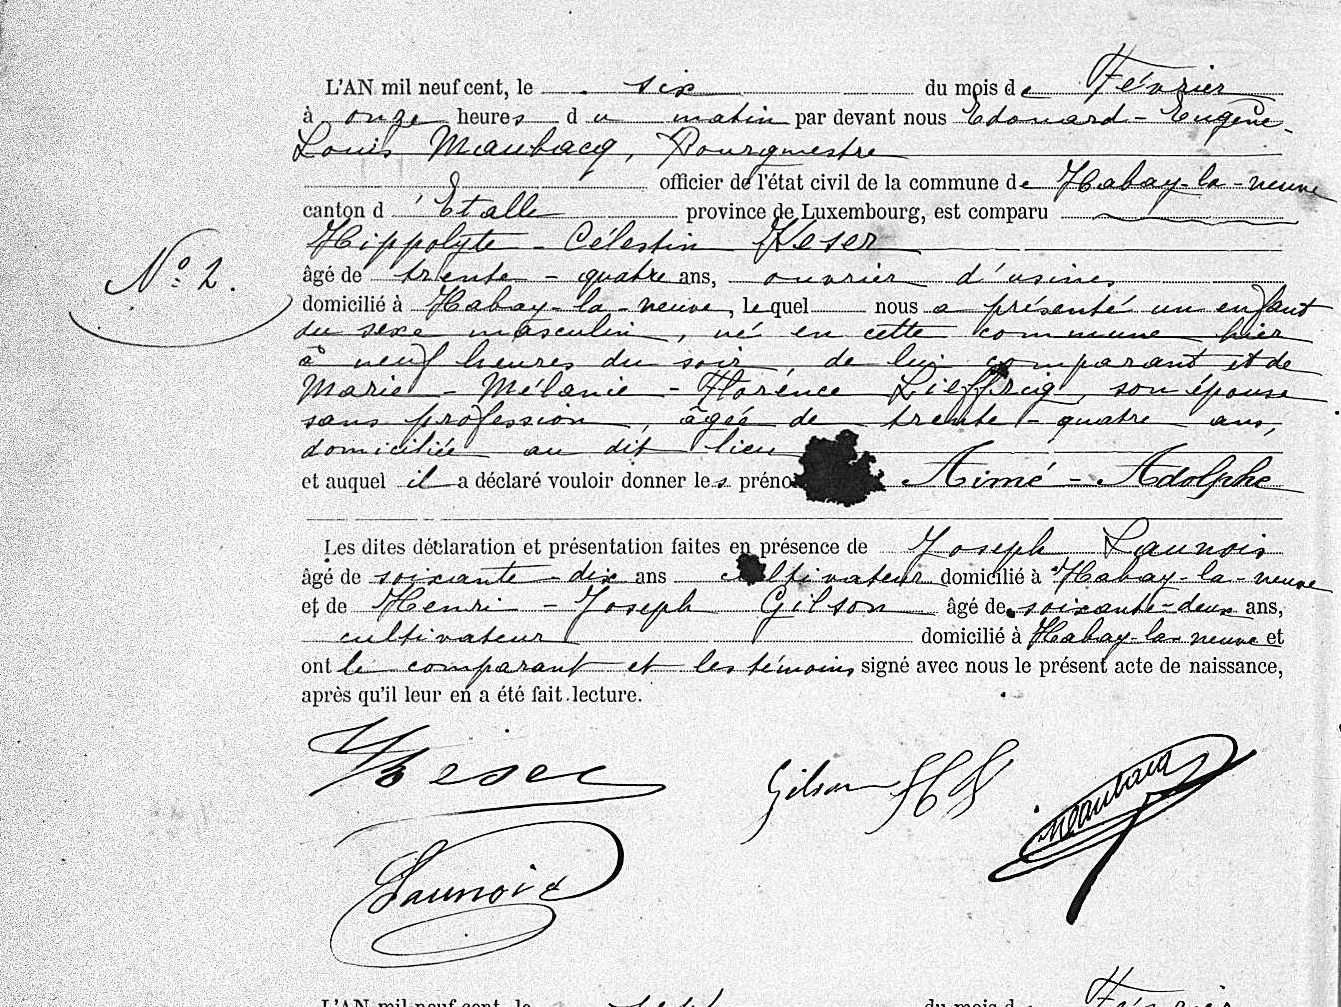 L'AN mil neuf cent, le six du mois de Février
à onze heures du matin par devant nous Edouard-Eugène-
Louis Maubacq, Bourgmestre
officier de l'état civil de la commune de Habay-la-neuve
canton d'Etalle province de Luxembourg, est comparu
Hippolyte-Célestin Keser
âgé de trente-quatre ans, ouvrier d'usines
N° 2.
domicilié à Habay-la-neuve, lequel nous a présenté un enfant
du sexe masculin, né en cette commune hier
à neuf heures du soir, de lui comparant et de
Marie-Mélanie-Florence Lieffrig, son épouse
sans profession, âgée de trente-quatre ans,
domiciliée au dit lieu
et auquel il a déclaré vouloir donner les préno Aimé-Adolphe
Les dites déclaration et présentation faites en présence de Joseph Launois
âgé de soixante-dix ans cultivateur domicilié à Habay-la-neuve
et de Henri-Joseph Gilson âgé de soixante-deux ans,
cultivateur domicilié à Habay-la-neuve et
ont le comparant et les témoins signé avec nous le présent acte de naissance,
après qu'il leur en a été fait lecture.
Keser Gilson HJ Maubacq
Launois
L'AN mil neuf cent, le sept du mois de Février